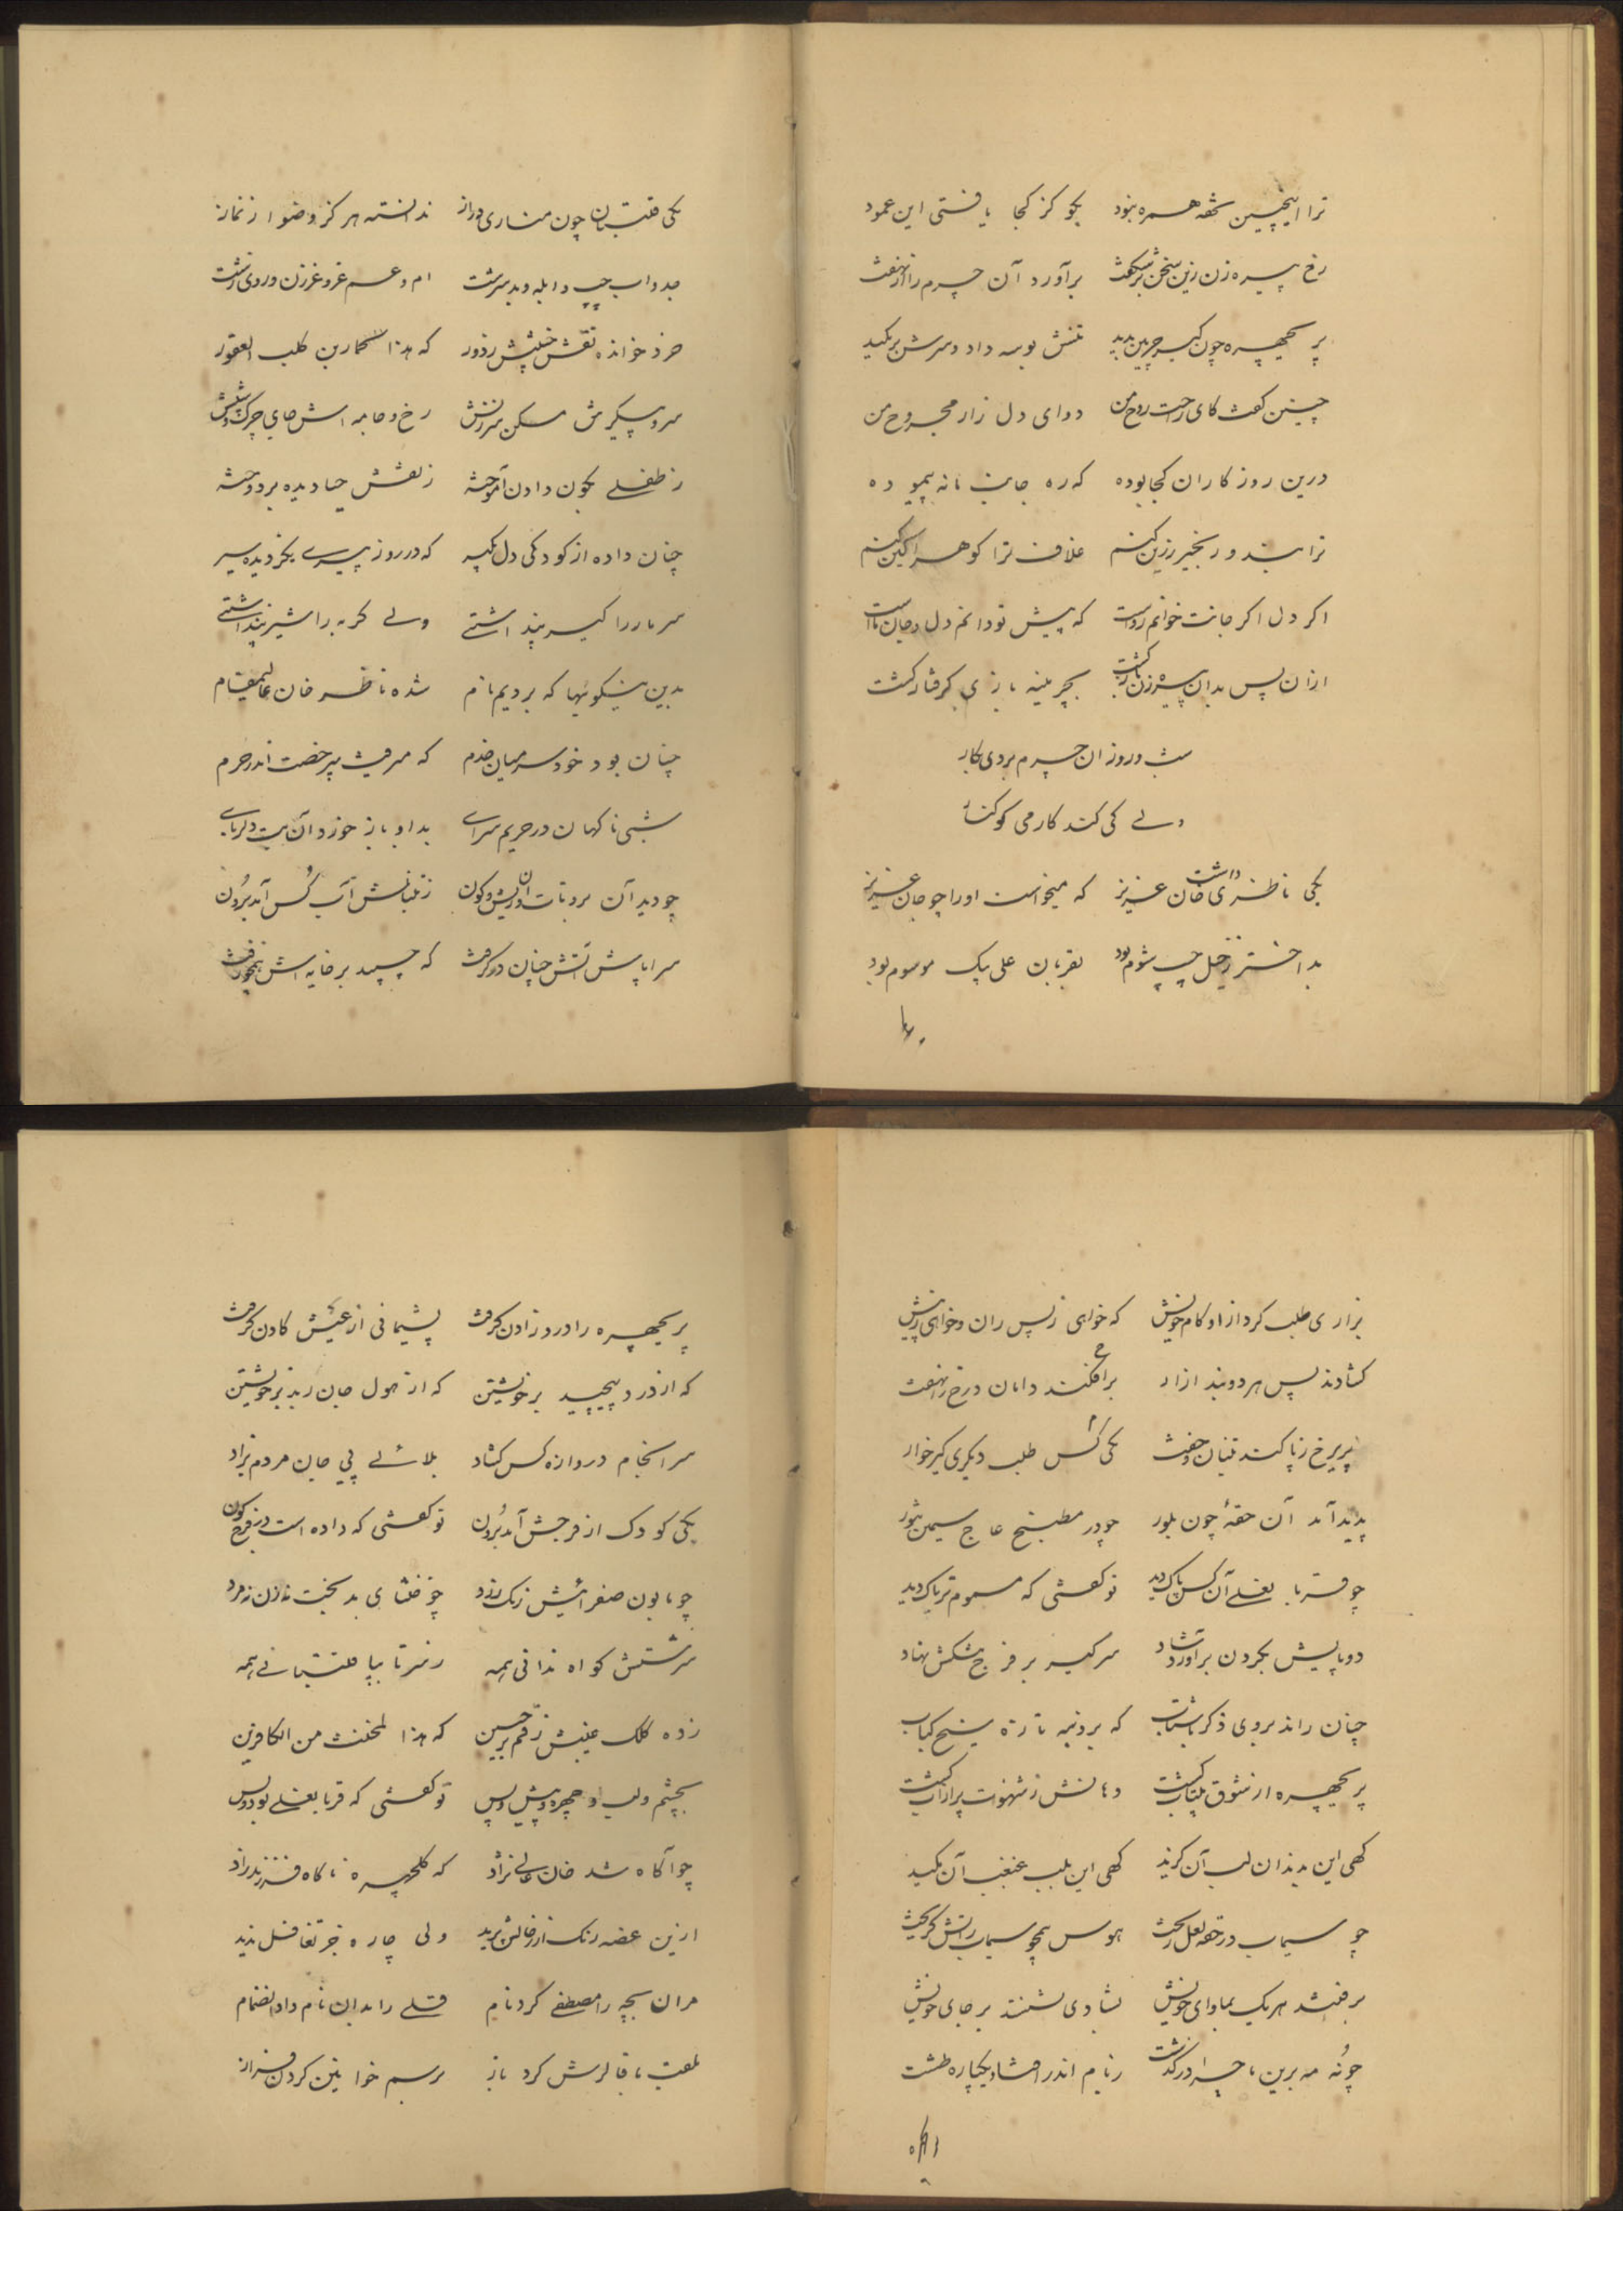 ترا اینچنین تحفه همره نبود بگو کز کجا یافتی این عمود
رخ پیره زن زین سخن برشکفت برآورد آن چرم راز نهفت
پریچهره چون کیر چرمین بدید تنش بوسه داد و سرش برمکید
چنین گفت کای راحت روح من دوای دل زار مجروح من
درین روزکاران کجا بوده که ره جانب ما نه پیموده
ترا بند و زنجیر زرین کنم غلاف ترا کوهر آکین کنم
اکر دل اکر جانت خوانم رواست که پیش تو دانم دل و جان
ازان پس بدان پیره زن یار کشت بچرمینه بازی کرفتار کشت
شب و روز ان چرم بردی بکار
ولے کی کند کار می کوکنار
یکی ناظری داشت خان عزیز که میخواست اورا چو جان عزیز
بد اختر زخیل چپ شوم بود بقربان علی بیک موسوم بود
یکی قلتبان چون مناری دراز ندانسته هرکز وضو از نماز
جد و اب چپ و ابله و بد سرشت ام و عم غر و غرزن و روی زشت
خرد خوانده نقش جبینش ز دور که هذا لکمارین کلب العقور
سر و پیکرش مسکن رخ و جامه اش جای چرک و
ز طفلی بکون دادن آموخته زنقش حیا دیده بردوخته
چنان داده از کودکی دل بکیر که در روز پیرے نکردیده سیر
سر مار را کیر پنداشتے ولے کربه را شیر پنداشتے
بدین نیکوئیها که بردیم نام شده ناظر خان عالیمقام
چنان بود خود سر میان خدم که میرفت بیرخصت اندر حرم
شبی ناکهان در حریم سراے بد او باز خورد آن بت دلربای
چو دید آن بروتات و ان ریش و کون ز تنبانش آب کُس آمد برُون
سراپاش آتش چنان درکرفت که چسپید بر خایه اش
بزاری طلب کرد ازو کام خویش که خواهی ز پس ران و خواهی ز پیش
کشادند پس هر دو بند ازار برافکند دامان و رخ را نهفت
پریرخ ز پا کند تنبان و خفت یکی کس طلب دیکری کیر خوار
پدید آمد آن حقهٔ چون بلور چو در مطبخ عاج سیمین تنور
چو قربا نعلے آن کس پاک دید تو کفتی که مسموم تریاک دید
دو پایش بکردن برآورد شاد سر کیر بر فرج مشکش نهاد
چنان راند بروی ذکر با شتاب که بر دنبه تازه سیخ کباب
پریچهره از شوق بیتاب کشت دهانش ز شهوت پر از آب کشت
کهی این بدندان لب آن کزید کهی این بلب غبغب آن مکید
چو سیماب در حقه لعل ریخت هوس همچو سیماب ز آتش کریخت
برفتند هر یک بماوای خویش بشادی نشستند بر جای خویش
چو نُه مه برین ماجرا در کذشت ز بام اندر افتاد یکباره طشت
پریچهره را درد زادن کرفت پشیمانی از عیش کادن کرفت
که از درد پیچید بر خویشتن که از هول جان رید بر خویشتن
سرانجام دروازه کس کشاد بلائے پی جان مردم بزاد
یکی کودک از فرجش آمد برُون تو کفتی که داده است در فرج کون
چو مابون صفرائیش رنک زرد چو خنثای بد بخت نه زن نه مرد
سرشتش کواه ندانی همه ز سر تا بپا قلتبانی همه
زده کلک غیبش رقم بر جبین که هذا لمخنث من الکافرین
بچشم و لب و چهره و پیش و پس تو کفتی که قربا نعلے بود و بس
چو آکاه شد خان عالی نژاد که کلچهره ناکاه فرزند زاد
ازین غصه رنک از رخانش پرید ولی چاره جز تغافل ندید
مران بچه را مصطفے کرد نام قلے را بدان نام داد انضمام
لقب ناقا لرش کرد باز برسم خوانین کردن فراز